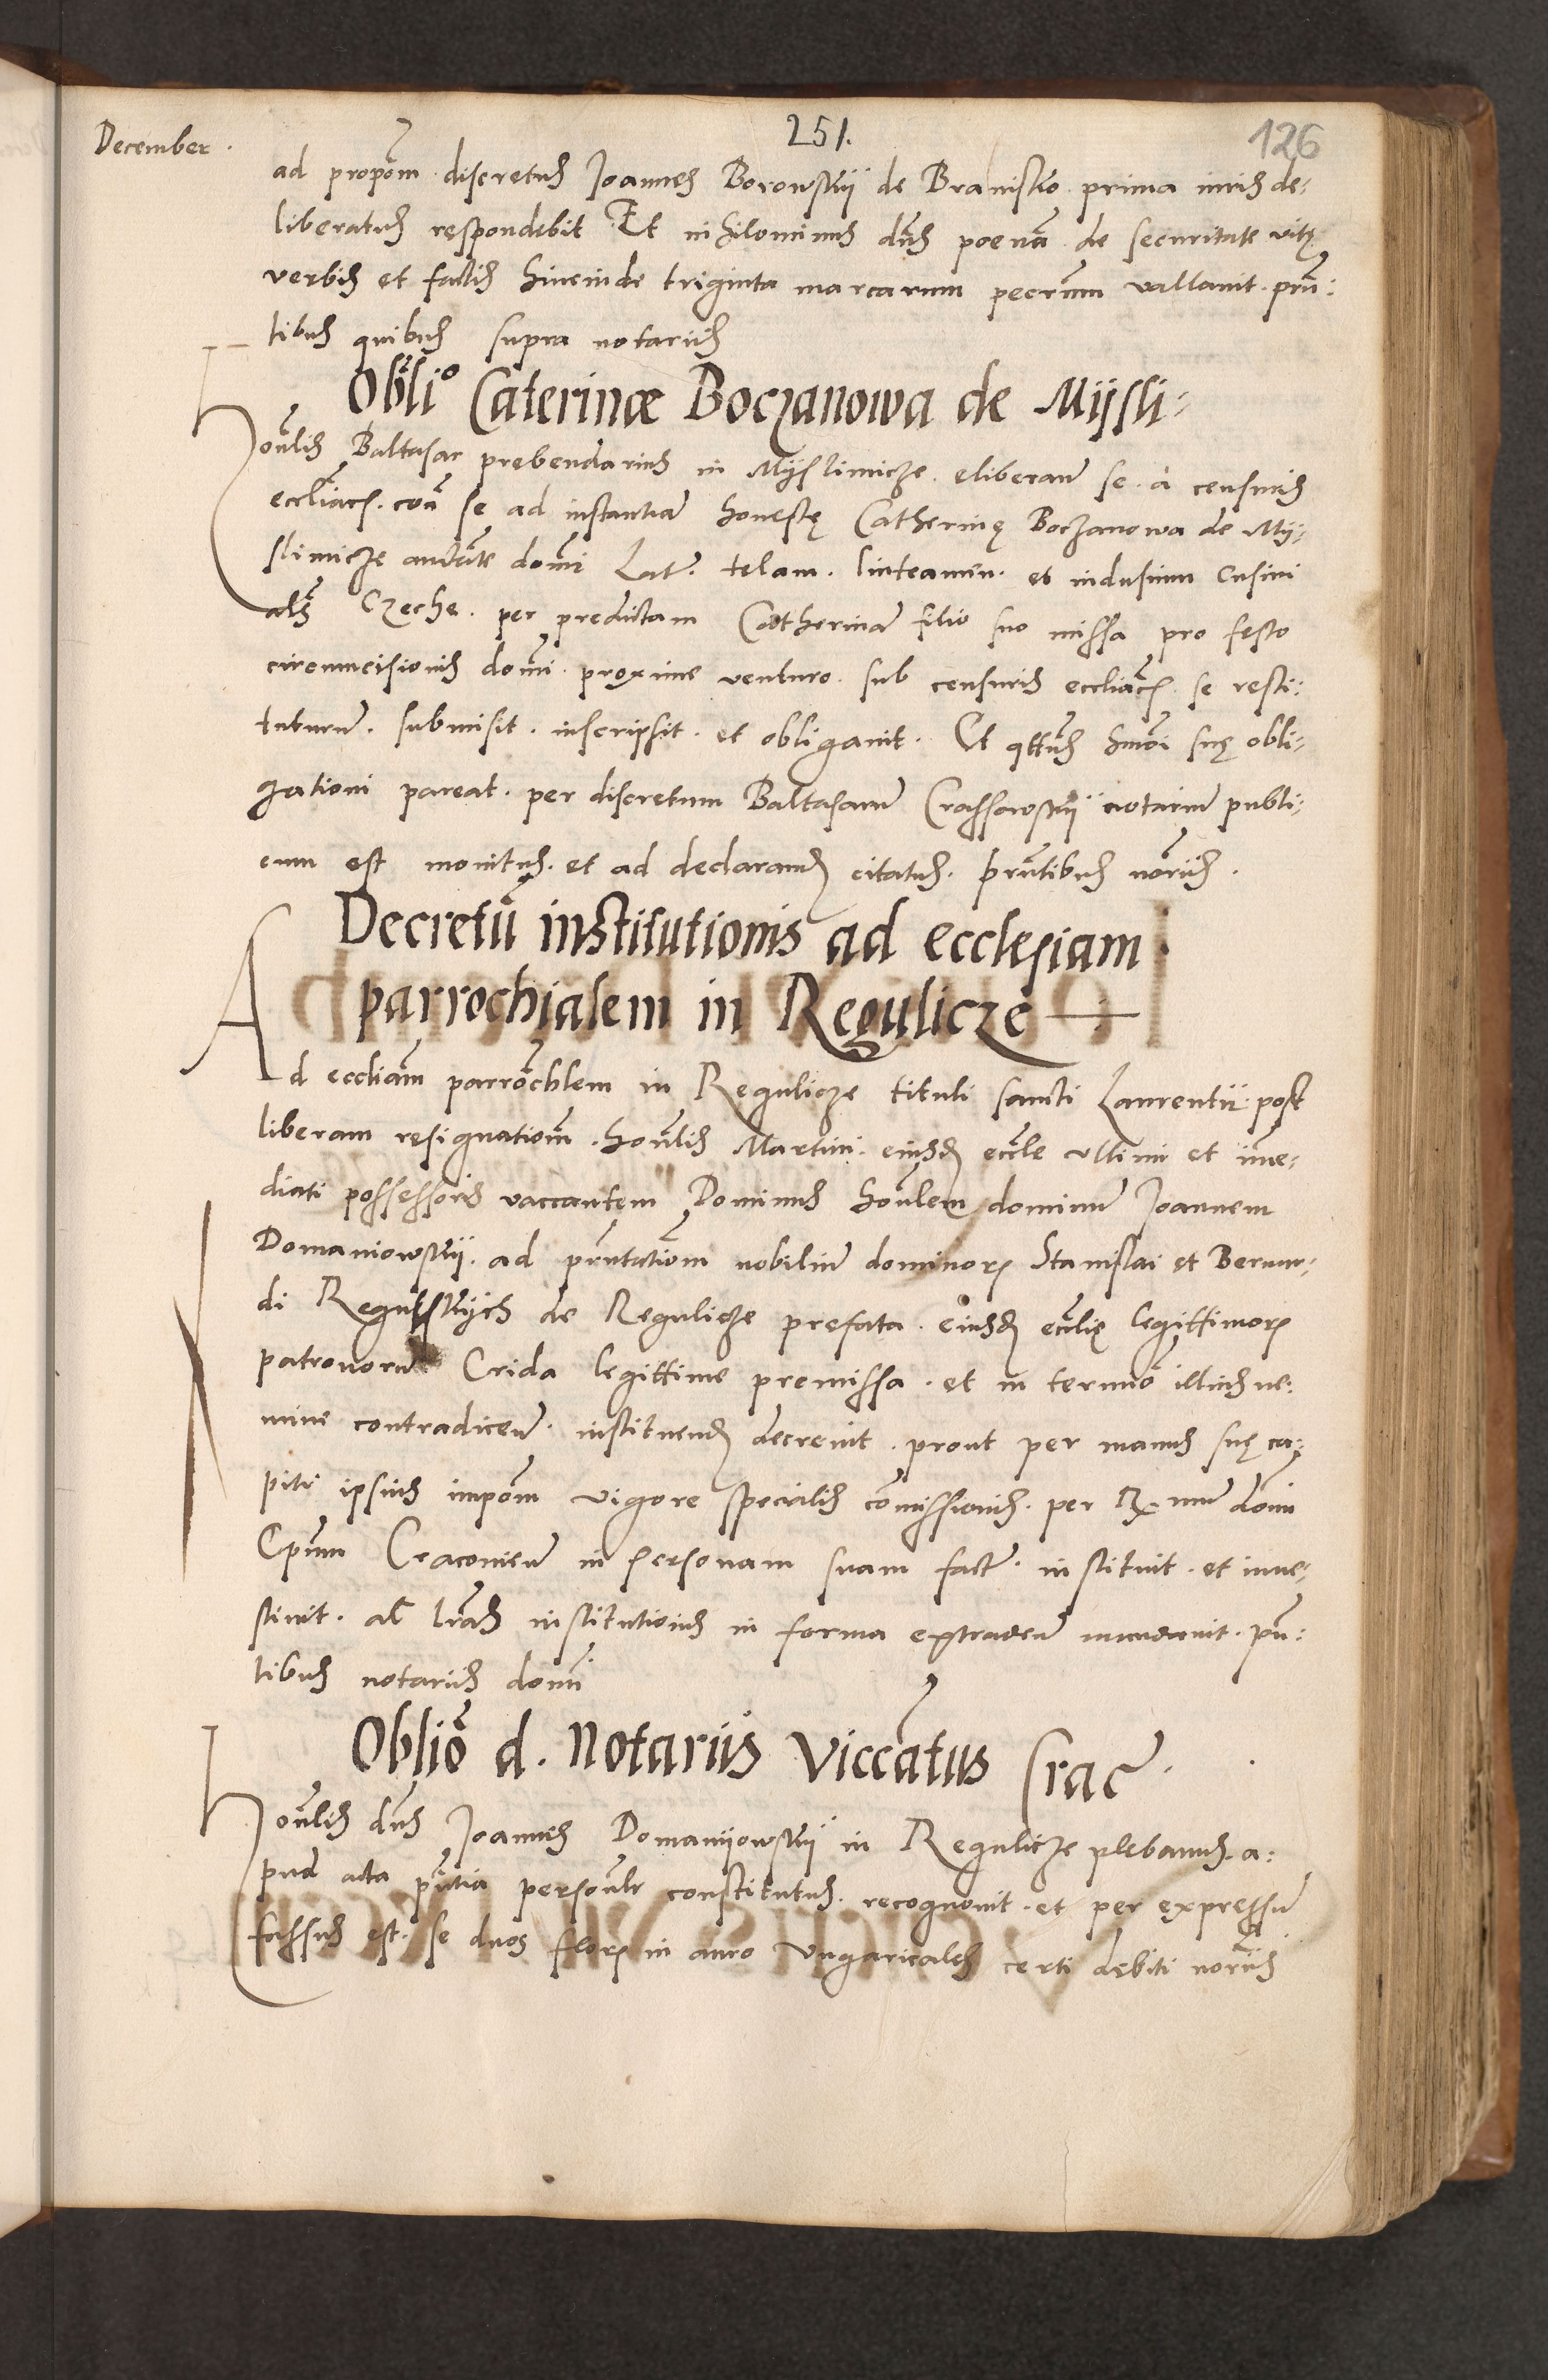 December.
251.
126
ad propom discretus Joannes Borowskÿ de Branisko prima iuris de-
liberatus respondebit Et nihilominus dns poenā de securitate vitę
verbis et factis hincinde triginta marcarum pecrum vallavit. prn-
tibus quibus supra notariis
Oblio Caterinæ Boczanowa de Mÿsli-
Honlis Baltasar prebendarius in Mÿslimicze eliberan se a censuris
eccliacs. coram se ad instantiam honestę Catherinę Boczanowa de Mÿ-
slimicze auctate domi Lat. telam. linteamen. et indusium
als Czeche. per predictam Catherinam filio suo missa pro festo
circumcisionis domi proxime venturo. sub censuris eccliacs se resti-
tuturum. submisit. inscripsit. et obligavit. Et hmoi suę obli-
gationi pareat. per discretum Baltasarum Crassowskÿ notarium publi-
cum est monitus. et ad declarand citatus. prntibus noriis.
Decretū institutionis ad ecclesiam
parrochialem in Regulicze
Ad eccliam parrochlem in Regulicze tituli sancti Laurentii post
liberam resignationm. honlis Martini. eiusd eccle ultimi et imme-
diati possessoris vaccantem Dominus honlem dominum Joannem
Domaniowskÿ. ad prntationm nobilium dominors Stanislai et Bernar-
di Regulskÿch de Regulicze prefata. eiusd ecclię legittimors
patronorum Crida legittime premissa. et in termio illius ne-
mine contradicen. instituend decrevit. prout per manus suę ca-
piti ipsius impom vigore specialis commissionis. per Rx mum domi
Epum Cracovien in personam suam fact. instituit. et inve-
stivit. ac lras institutionis in forma extraden mandavit. prn-
tibus notariis domi
Oblio d. Notariis Viccatus Crac.
Honlis dns Joannes Domanÿowskÿ in Regulicze plebanus. a-
pud acta prntia personlr constitutus. recognovit. et per expressum
fassus est. se duos flors in auro Ungaricales certi debiti noriis